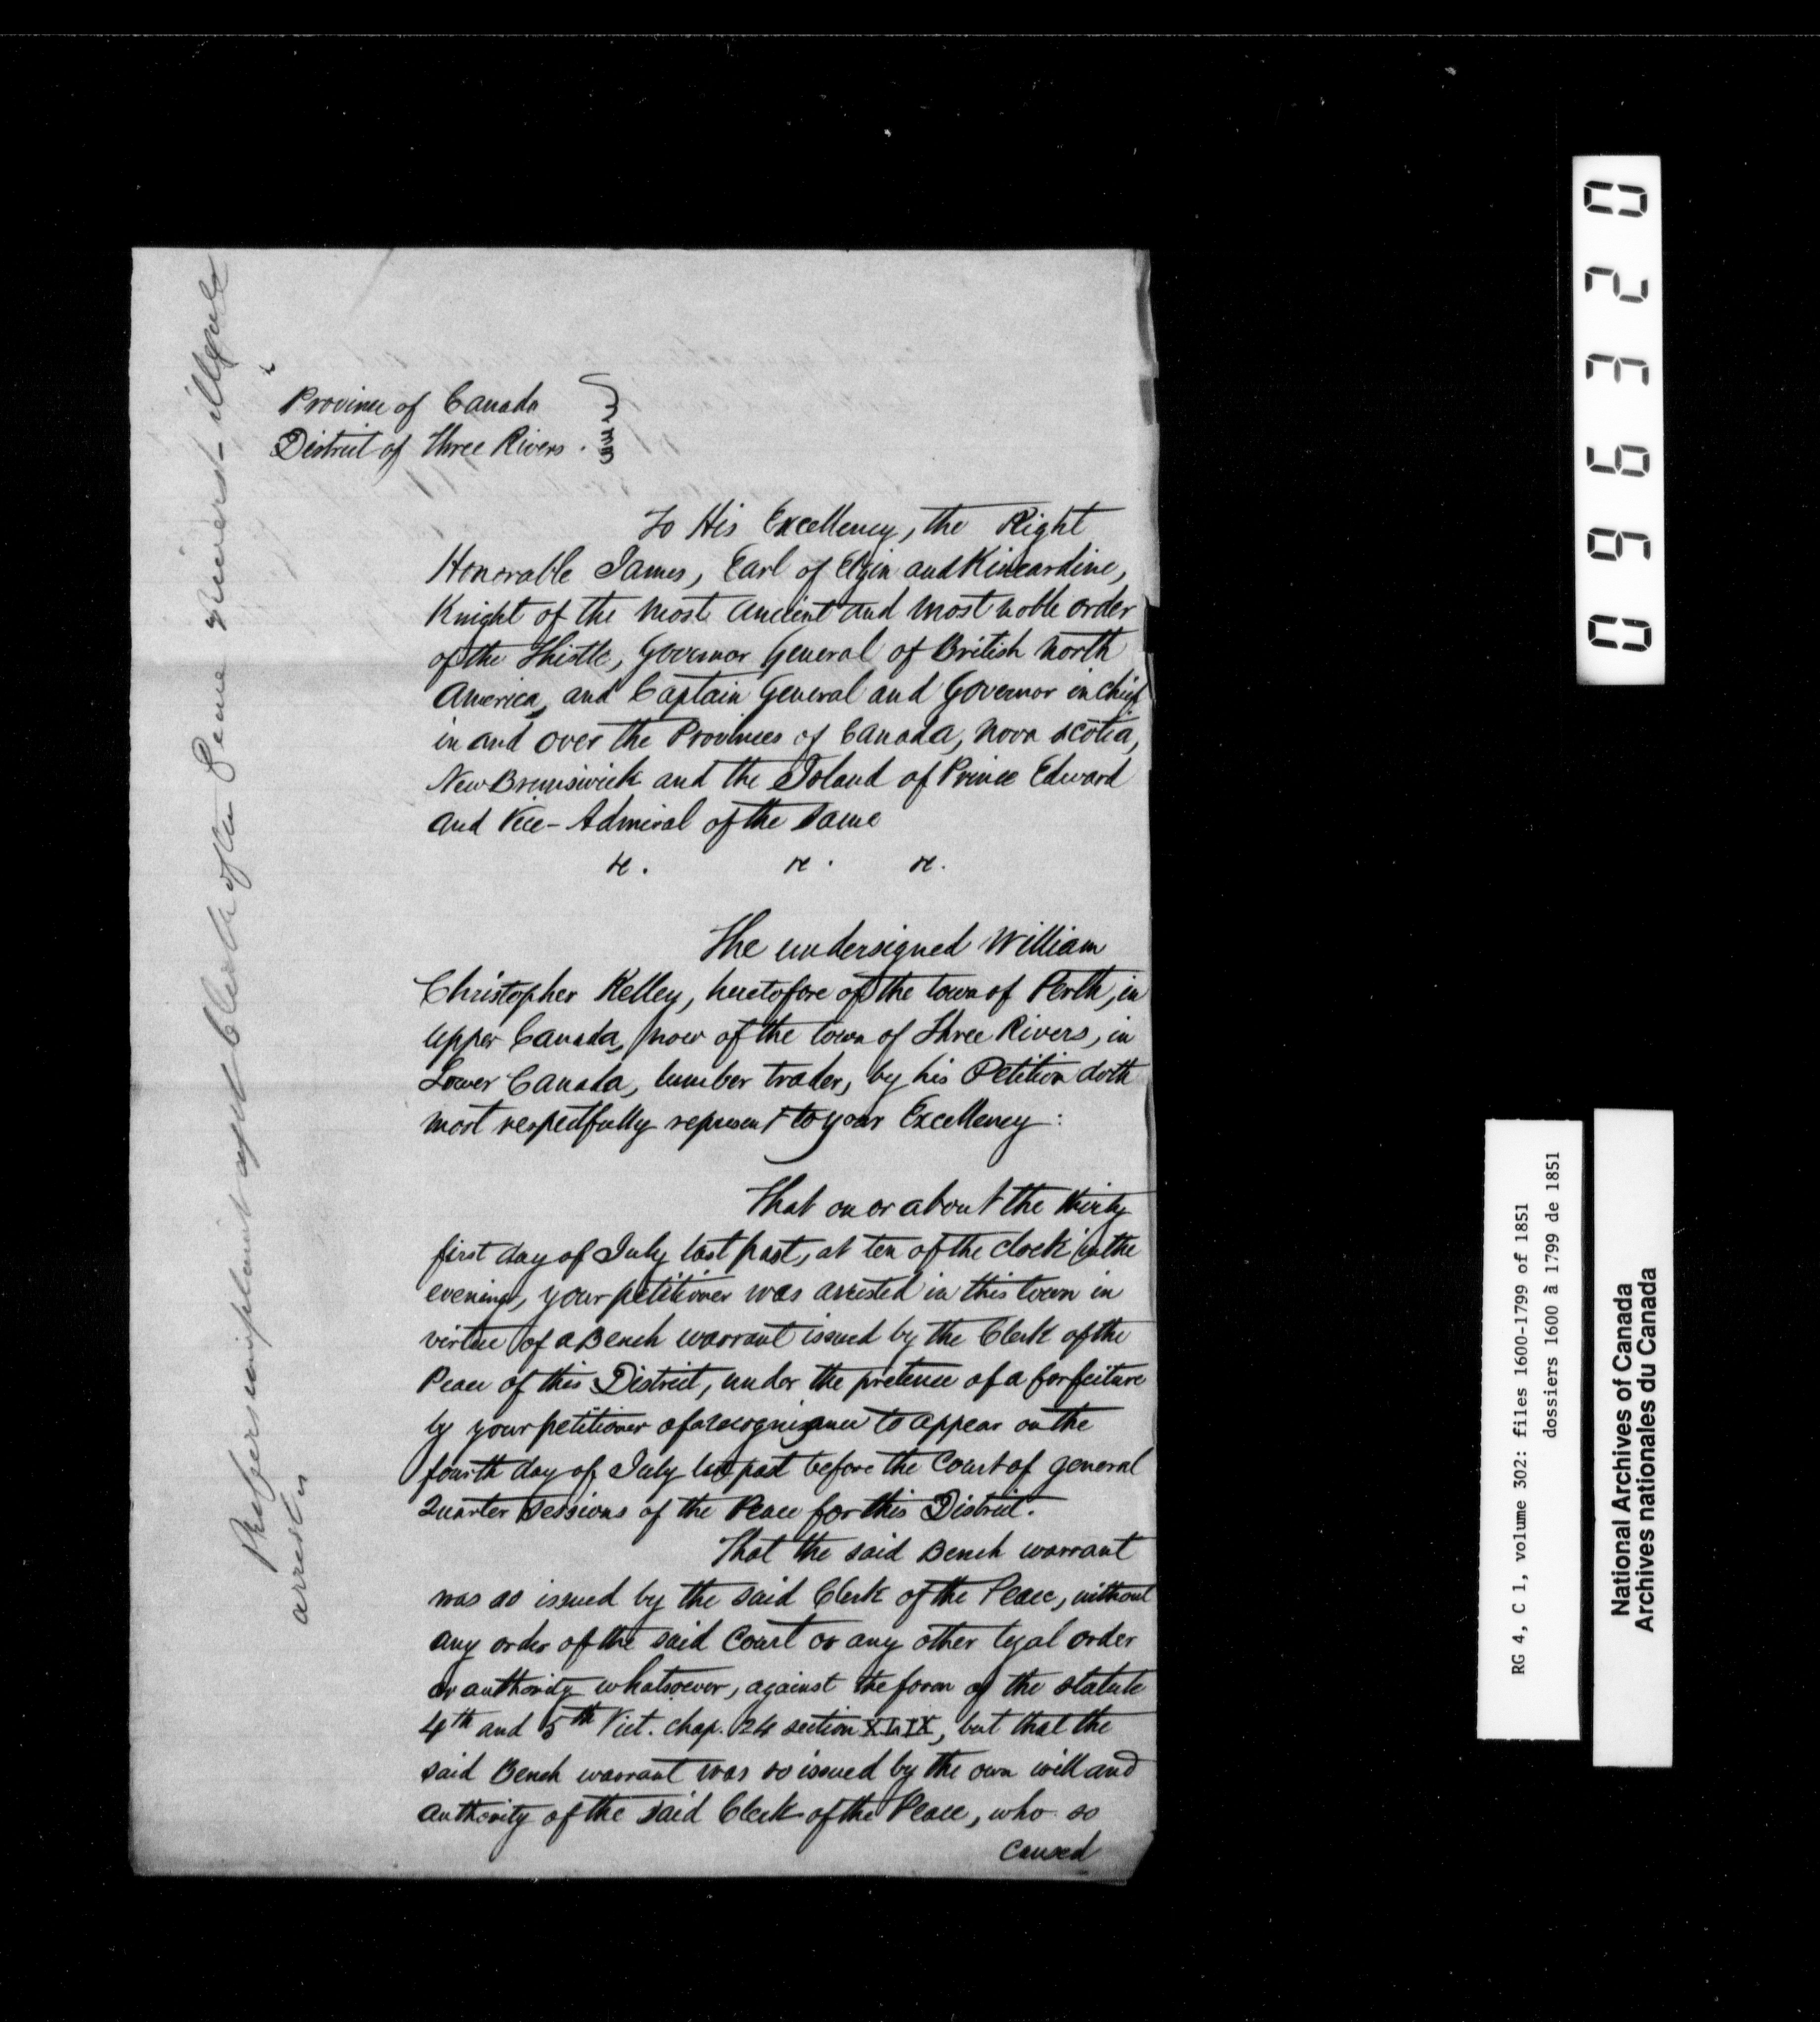 Province of Canada
District of Three Rivers.
To His Excellency, the Right
Honorable James, Earl of Elgin and Kincardine,
Knight of the most ancient and most noble order
of the Thistle, Governor General of British North
America, and Captain General and Governor in chief
in and over the Provinces of Canada, Nova Scotia,
New Brunswick and the Island of Prince Edward
and Vice-Admiral of the same
&c. &c. &c.
The undersigned William
Christopher Kelley, heretofore of the town of Perth, in
Upper Canada, now of the town of Three Rivers, in
Lower Canada, lumber trader, by his Petition doth
most respectfully represent to your Excellency:
That on or about the thirty
first day of July last past, at ten of the clock in the
evening, your petitioner was arrested in this town in
virtue of a Bench warrant issued by the Clerk of the
Peace of this District, under the pretence of a forfeiture
by your petitioner of a recognizance to appear on the
fourth day of July last past before the Court of general
Quarter Sessions of the Peace for this District.
That the said Bench warrant
was so issued by the said Clerk of the Peace, without
any order of the said Court or any other legal order
or authority whatsoever, against the form of the statute
4th and 5th Vict. chap. 24 section XLIX, but that the
said Bench warrant was so issued by the own will and
authority of the said Clerk of the Peace, who so
caused
Prefers complaint agst Clerk of the Peace 3 Rivers - illegal
arrest
096320
RG 4, C 1, volume 302: files 1600-1799 of 1851
dossiers 1600 à 1799 de 1851
National Archives of Canada
Archives nationales du Canada